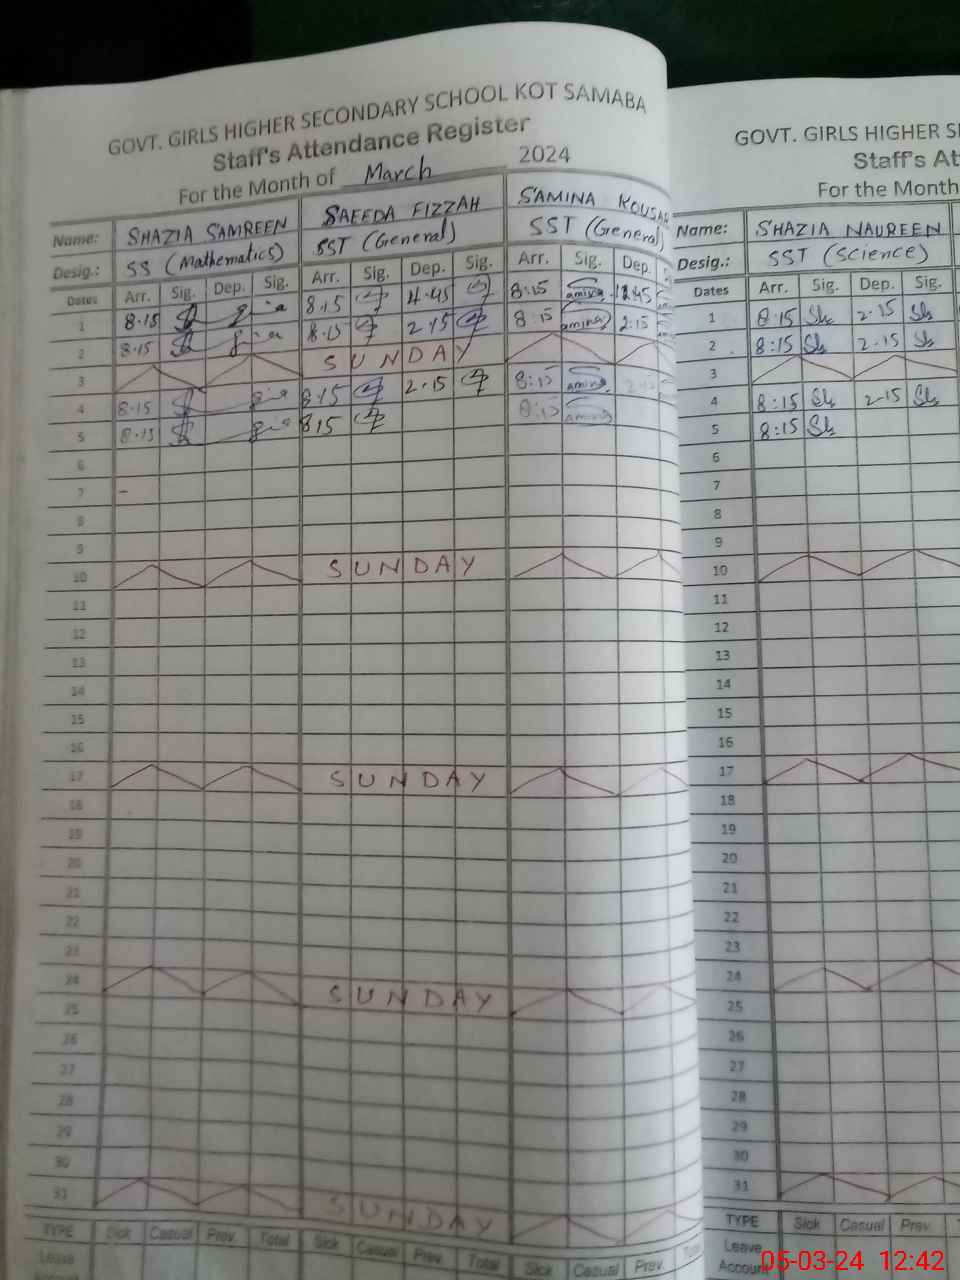 GOVT. GIRLS HIGHER SECONDARY SCHOOL KOT SAMABA
Staff's Attendance Register
For the Month of March 2024
Name: SHAZIA SAMREEN SAEEDA FIZZAH SAMINA KOUSAR
Desig.: SS (Mathematics) SST (General) SST (General)
Dates Arr. Sig. Dep. Sig. Arr. Sig. Dep. Sig. Arr. Sig. Dep.
1 8.15 8.15 8:15
2 8.15 8.15 2.15 8:15 2:15
3 SUNDAY
4 8.15 8.15 2.15 8:15
5 8.15 815 8:15
6
7 -
8
9
10 SUNDAY
11
12
13
14
15
16
17 SUNDAY
18
19
20
21
22
23
24 SUNDAY
25
26
27
28
29
30
31 SUNDAY
TYPE Sick Casual Prev. Total Sick Casual Prev. Total Sick Casual Prev.
Leave
GOVT. GIRLS HIGHER S
Staff's At
For the Month
Name: SHAZIA NAUREEN
Desig.: SST (Science)
Dates Arr. Sig. Dep. Sig.
1 8:15 Sh 2.15 Sh
2 8:15 Sh 2.15 Sh
3
4 8:15 Sh 2.15 Sh
5 8:15 Sh
6
7
8
9
10
11
12
13
14
15
16
17
18
19
20
21
22
23
24
25
26
27
28
29
30
31
TYPE Sick Casual Prev.
Leave
Account
05-03-24 12:42